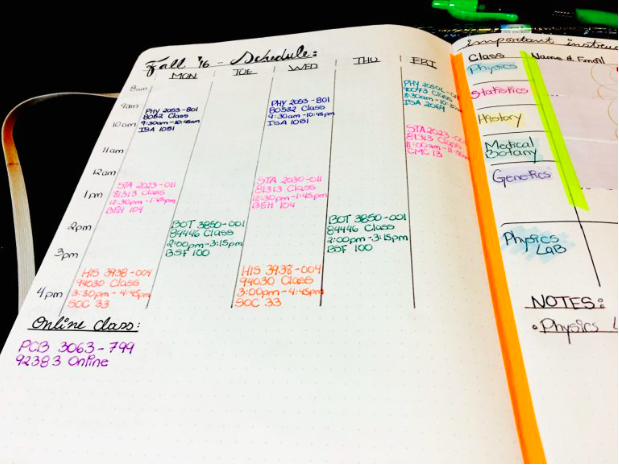 Fall '16 - Schedule:
MON TUE WED THU FRI
8am
9am
10am
11am
12am
1pm
2pm
3pm
4pm
PHY 2053-801
80582 Class
9:30am-10:45am
ISA 1051
STA 2023-011
81313 Class
12:30pm-1:45pm
BEH 104
HIS 3938-004
94030 Class
3:30pm-4:45pm
SOC 33
BOT 3850-001
89446 Class
2:00pm-3:15pm
BSF 100
PHY 2053-801
80582 Class
9:30am-10:45am
ISA 1051
STA 2030-011
81313 Class
12:30pm-1:45pm
BEH 104
HIS 3938-004
94030 Class
3:00pm-4:45pm
SOC 33
BOT 3850-001
89446 Class
2:00pm-3:15pm
BSF 100
Class
ISA
STA 2023
81313 Class
Online class:
PCB 3063-799
92383 Online
important
Class Name & Email
Physics
Statistics
History
Medical
Botany
Genetics
Physics
LAB
NOTES:
• Physics L